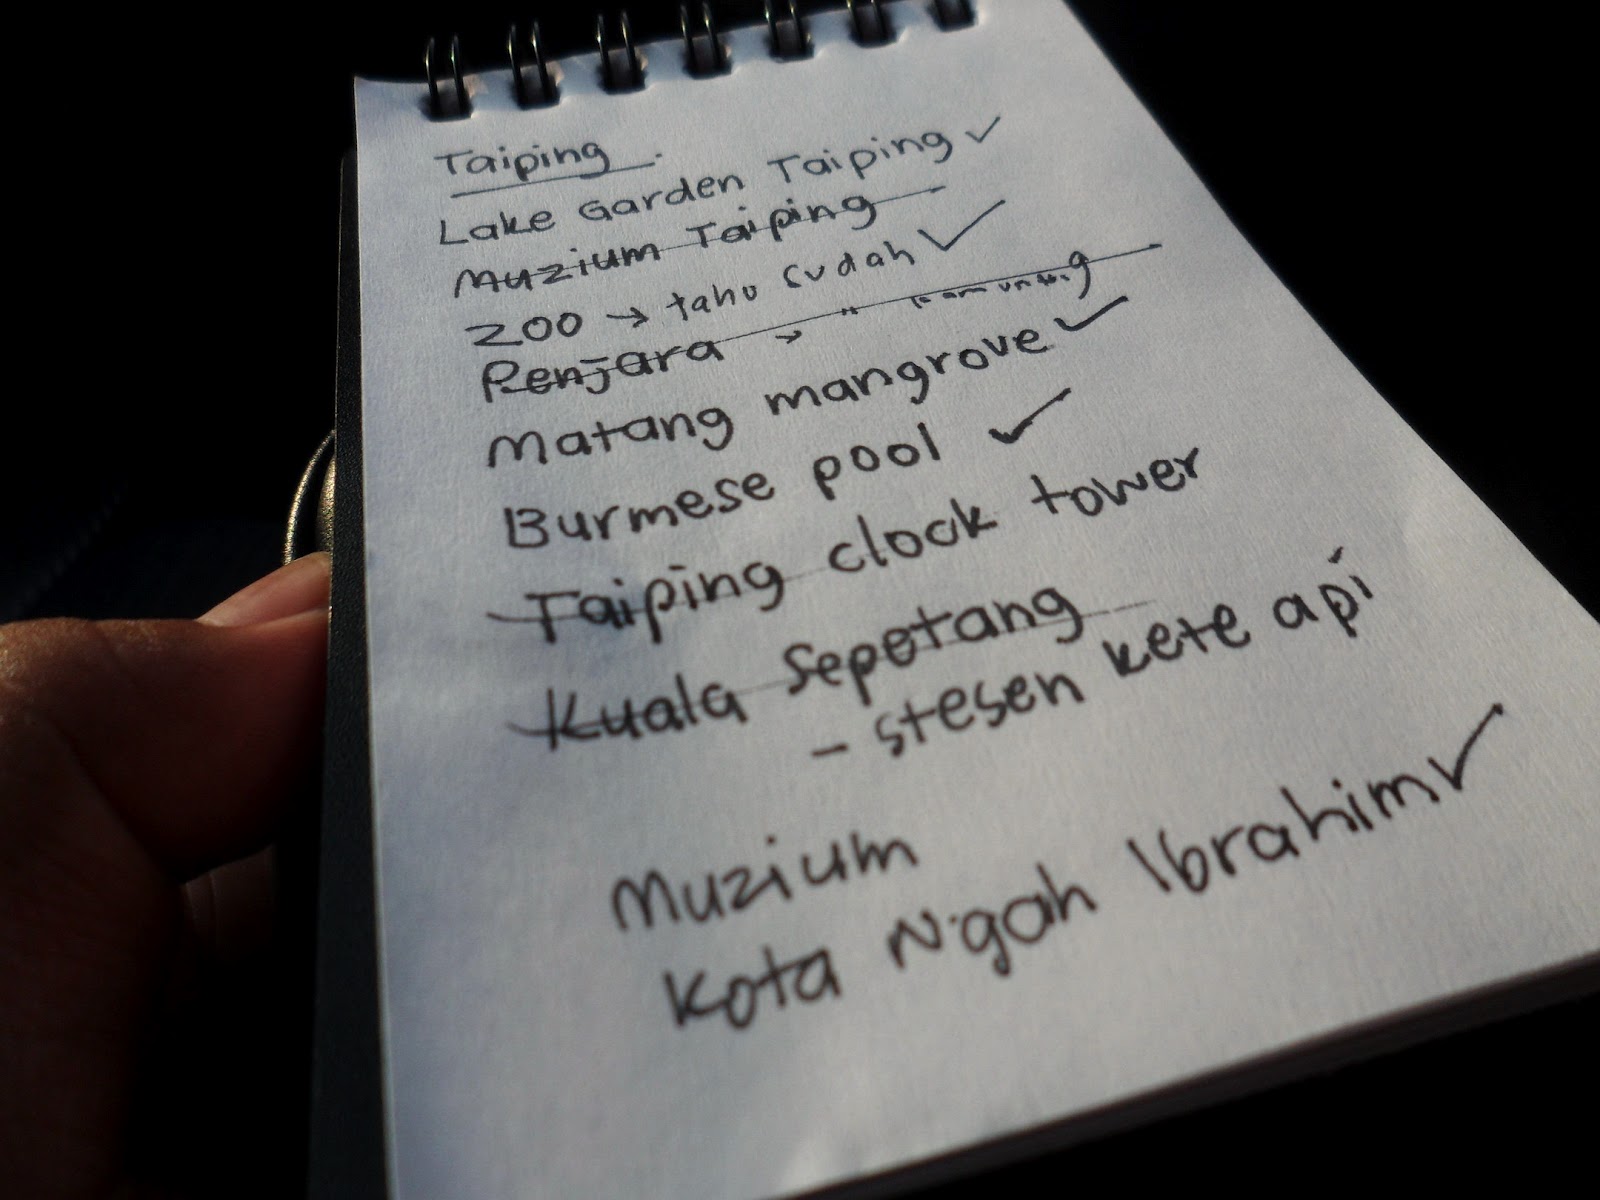 Taiping
Lake Garden Taiping ✓
Muzium Taiping
Zoo → tahu sudah ✓
Penjara → " Kamunting
Matang mangrove ✓
Burmese pool ✓
Taiping clock tower
Kuala Sepetang
- stesen kete api
Muzium
Kota Ngah Ibrahim ✓